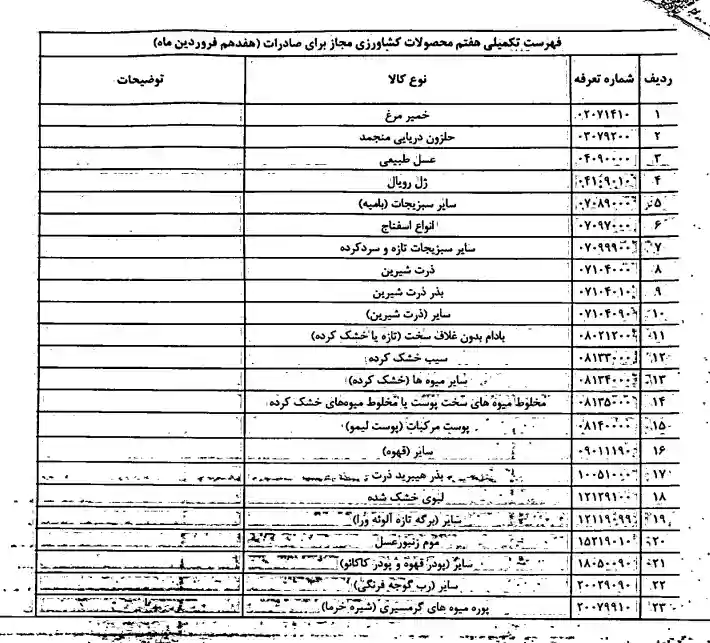 فهرست تکمیلی هفتم محصولات کشاورزی مجاز برای صادرات (هفدهم فروردین ماه)
ردیف شماره تعرفه نوع کالا توضیحات
۱ ۰۲۰۷۱۴۱۰ خمیر مرغ
۲ ۰۳۰۷۹۲۰۰ حلزون دریایی منجمد
۳ ۰۴۰۹۰۰۰۰ عسل طبیعی
۴ ۰۴۱۰۹۰۱۰ ژل رویال
۵ ۰۷۰۸۹۰۰۰ سایر سبزیجات (بامیه)
۶ ۰۷۰۹۷۰۰۰ انواع اسفناج
۷ ۰۷۰۹۹۹۰۰ سایر سبزیجات تازه و سردکرده
۸ ۰۷۱۰۴۰۰۰ ذرت شیرین
۹ ۰۷۱۰۴۰۱۰ بذر ذرت شیرین
۱۰ ۰۷۱۰۴۰۹۰ سایر (ذرت شیرین)
۱۱ ۰۸۰۲۱۲۰۰ بادام بدون غلاف سخت (تازه یا خشک کرده)
۱۲ ۰۸۱۳۳۰۰۰ سیب خشک کرده
۱۳ ۰۸۱۳۴۰۰۰ سایر میوه ها (خشک کرده)
۱۴ ۰۸۱۳۵۰۰۰ مخلوط میوه های سخت پوست یا مخلوط میوه‌های خشک کرده
۱۵ ۰۸۱۴۰۰۰۰ پوست مرکبات (پوست لیمو)
۱۶ ۰۹۰۱۱۱۹۰ سایر (قهوه)
۱۷ ۱۰۰۵۱۰۰۰ بذر هیبرید ذرت
۱۸ ۱۲۱۲۹۱۰۰ لبوی خشک شده
۱۹ ۱۲۱۱۹۰۹۹ سایر (برگه تازه آلوئه ورا)
۲۰ ۱۵۲۱۹۰۱۰ موم زنبورعسل
۲۱ ۱۸۰۵۰۰۹۰ سایر (پودر قهوه و پودر کاکائو)
۲۲ ۲۰۰۲۹۰۹۰ سایر (رب گوجه فرنگی)
۲۳ ۲۰۰۷۹۹۱۰ پوره میوه های گرمسیری (شیره خرما)